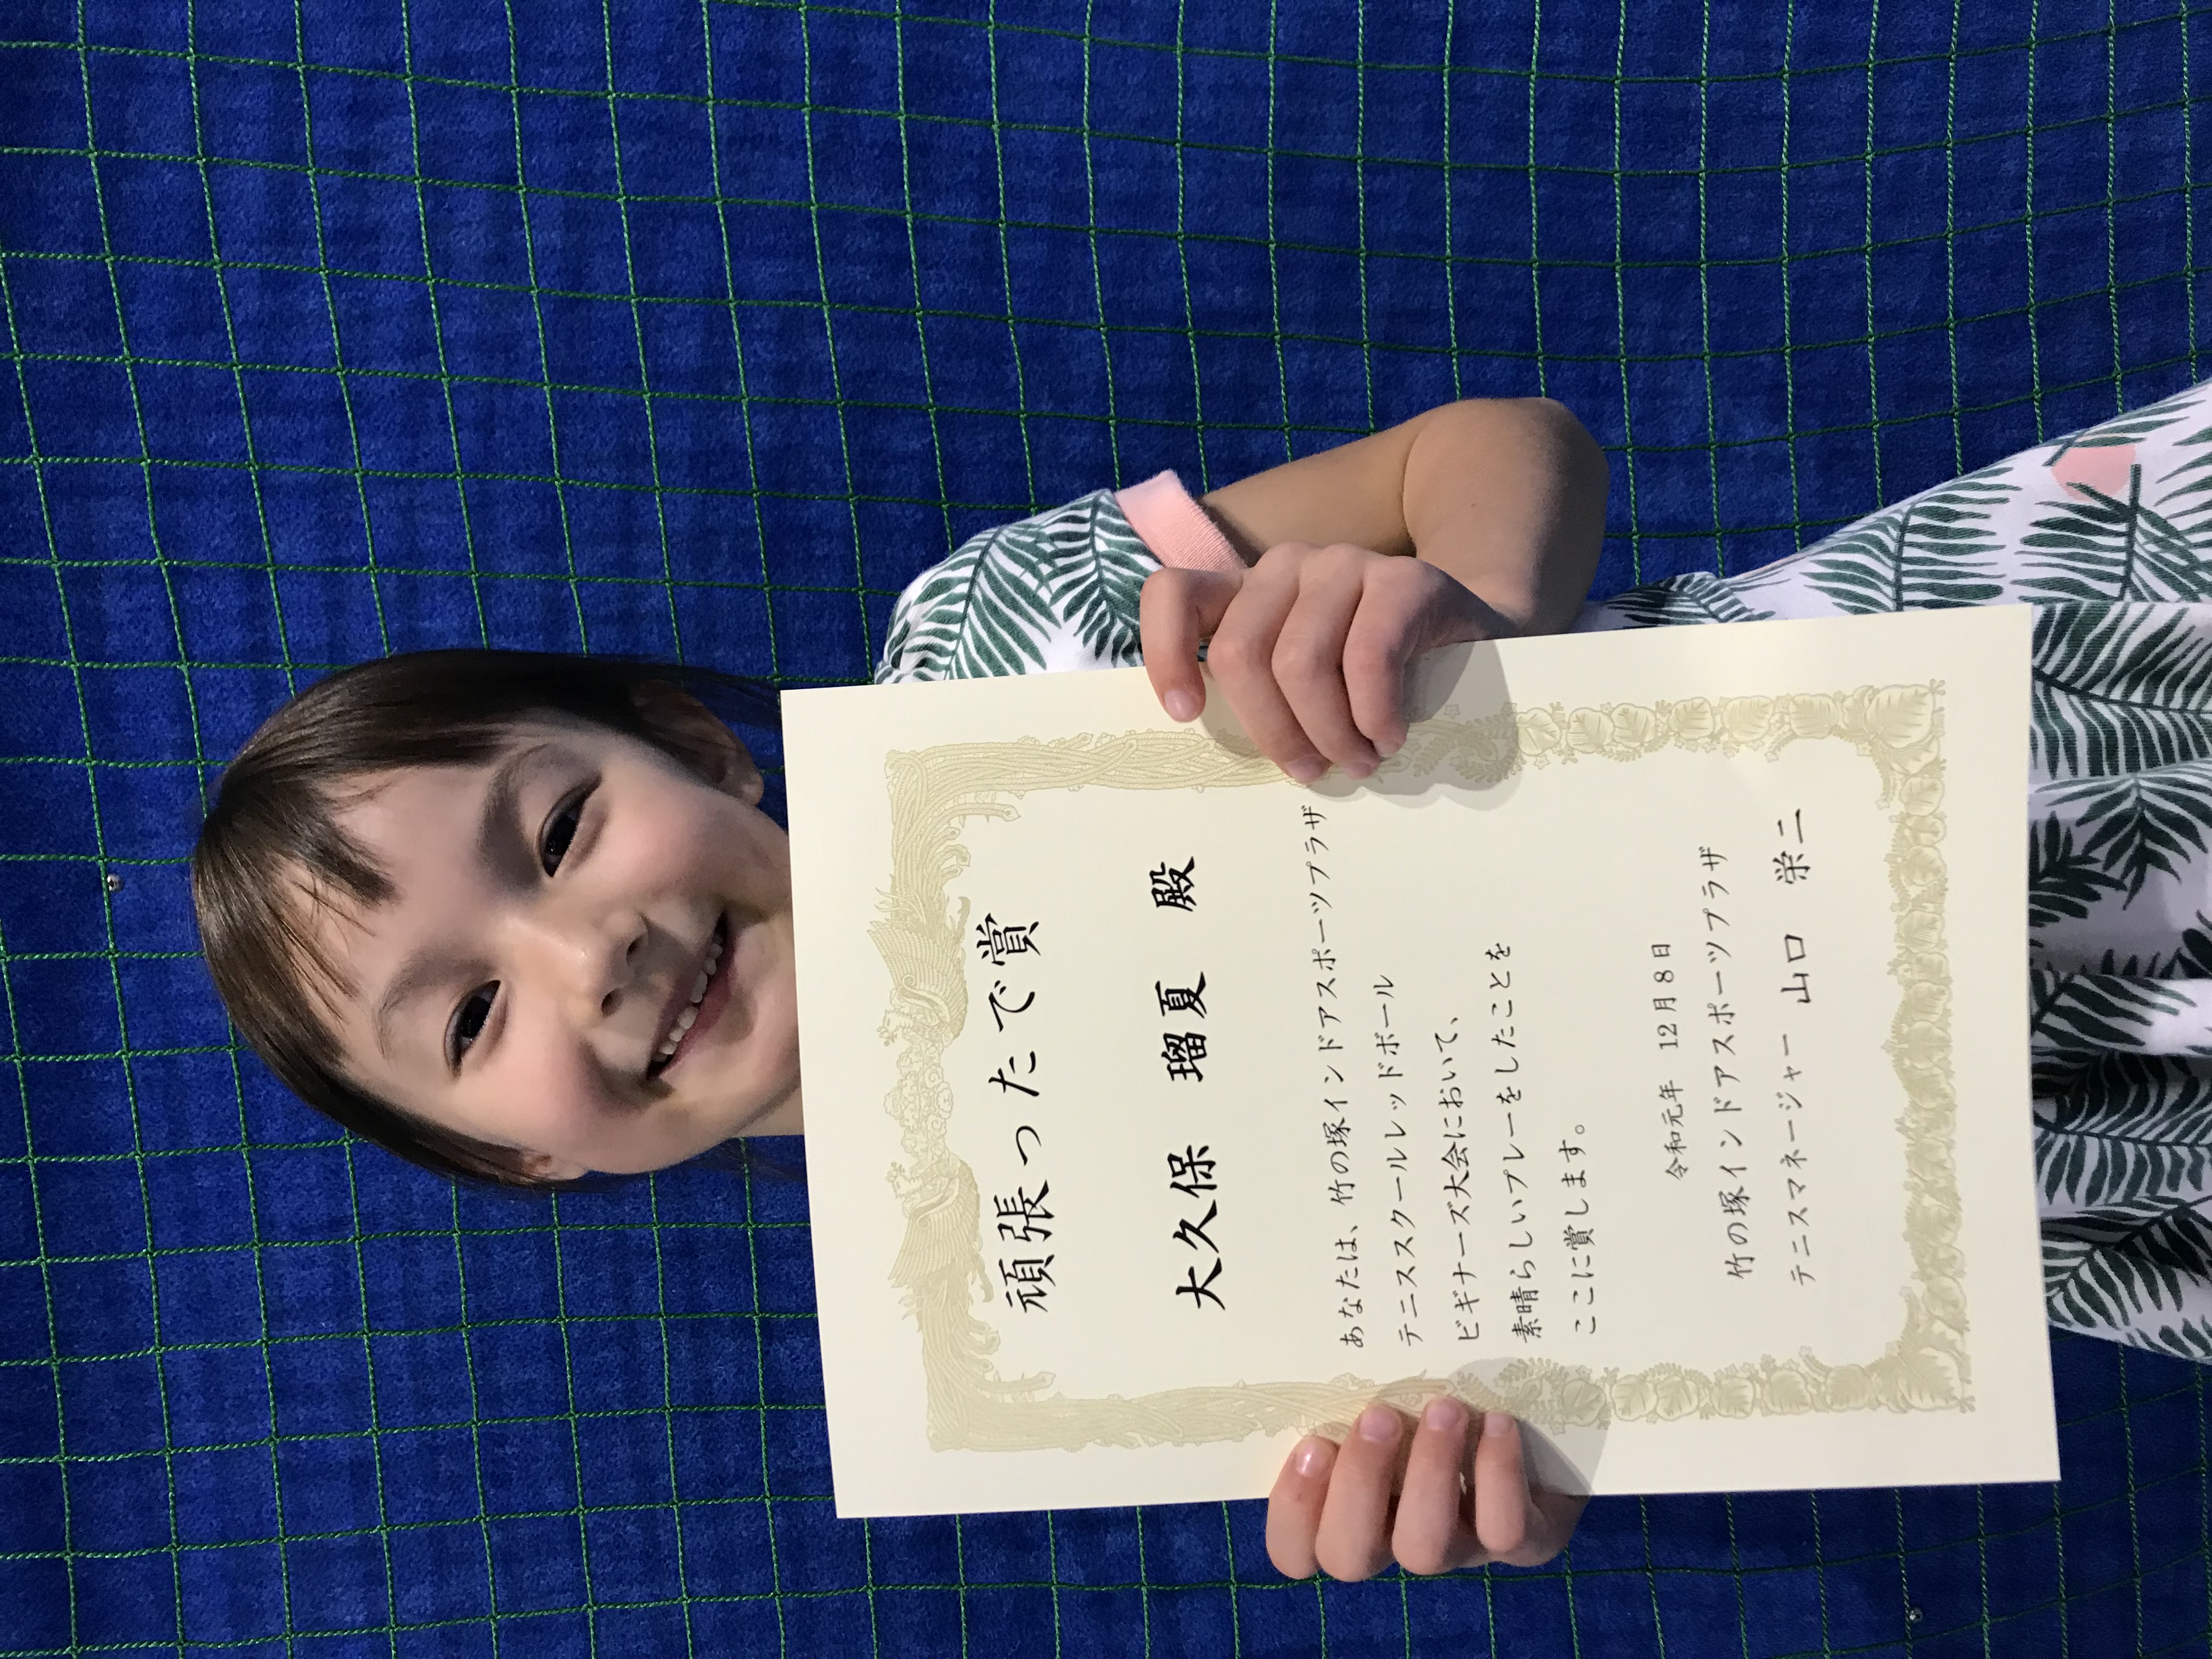 頑張ったで賞
大久保　瑠夏　殿
あなたは、竹の塚インドアスポーツプラザ
テニススクールレッドボール
ビギナーズ大会において、
素晴らしいプレーをしたことを
ここに賞します。
令和元年　12月8日
竹の塚インドアスポーツプラザ
テニスマネージャー　山口　栄二